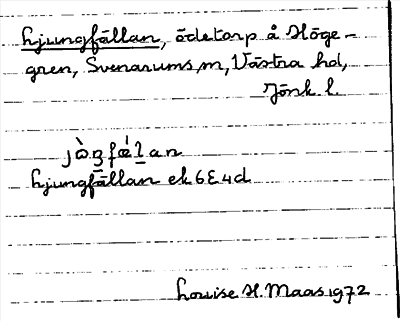 Ljungfällan, ödetorp å Höge-
gren, Svenarums sn, Västra hd,
Jönk. l.
jòŋfǽlan
Ljungfällan ek 6E4d
Louise H. Maas 1972